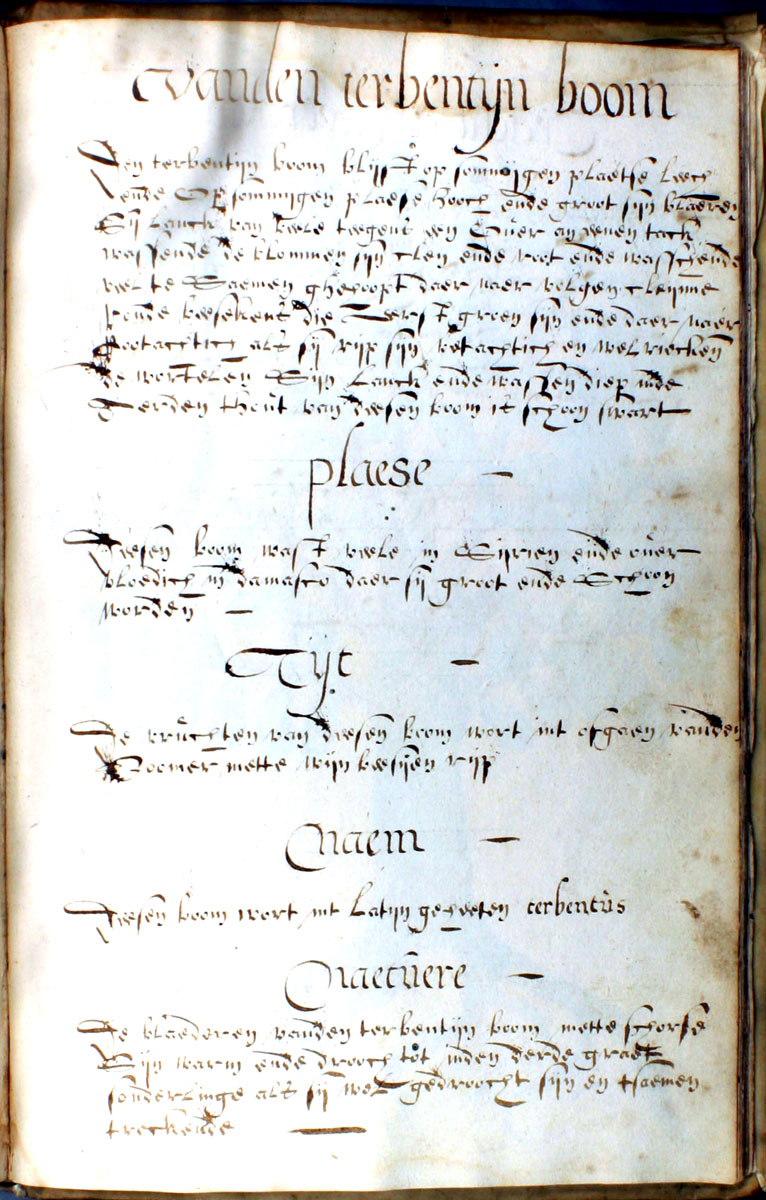 Vanden terbentijn boom
Den terbentijn boom blijft op sommijgen plaetse leech
ende op sommijgen plaese hooch ende groot sijn blaeren
sij lanck van vele teegens een over an eenen tack
wassende de blommen sijn clen ende root ende wasschende
vel te saemen ghehoopt daer naer volgen cleijnne
ronde beesekens die eerst groen sijn ende daer naer
rootachtich als sij rijp sijn vetachtich en welriecken
de wortelen sijn lanck ende wassen diep inde
eerden thout van deesen boom is schoon swart
plaese
Deesen boom wast veele in Sijrien ende over
vloedich in damasco daer sij groot ende schoon
worden
Tijt
De vruchten van deesen boom wort int ofgaen vanden
soomer mette wijn beesijen rijp
Naem
Deesen boom wort int latijn geheeten terbentus
Naetuere
De blaederen vanden terbentijn boom mette schorse
sijn warm ende drooch tot inden derde graet
sonderlinge als sij wel gedroocht sijn en tsaemen
treckende